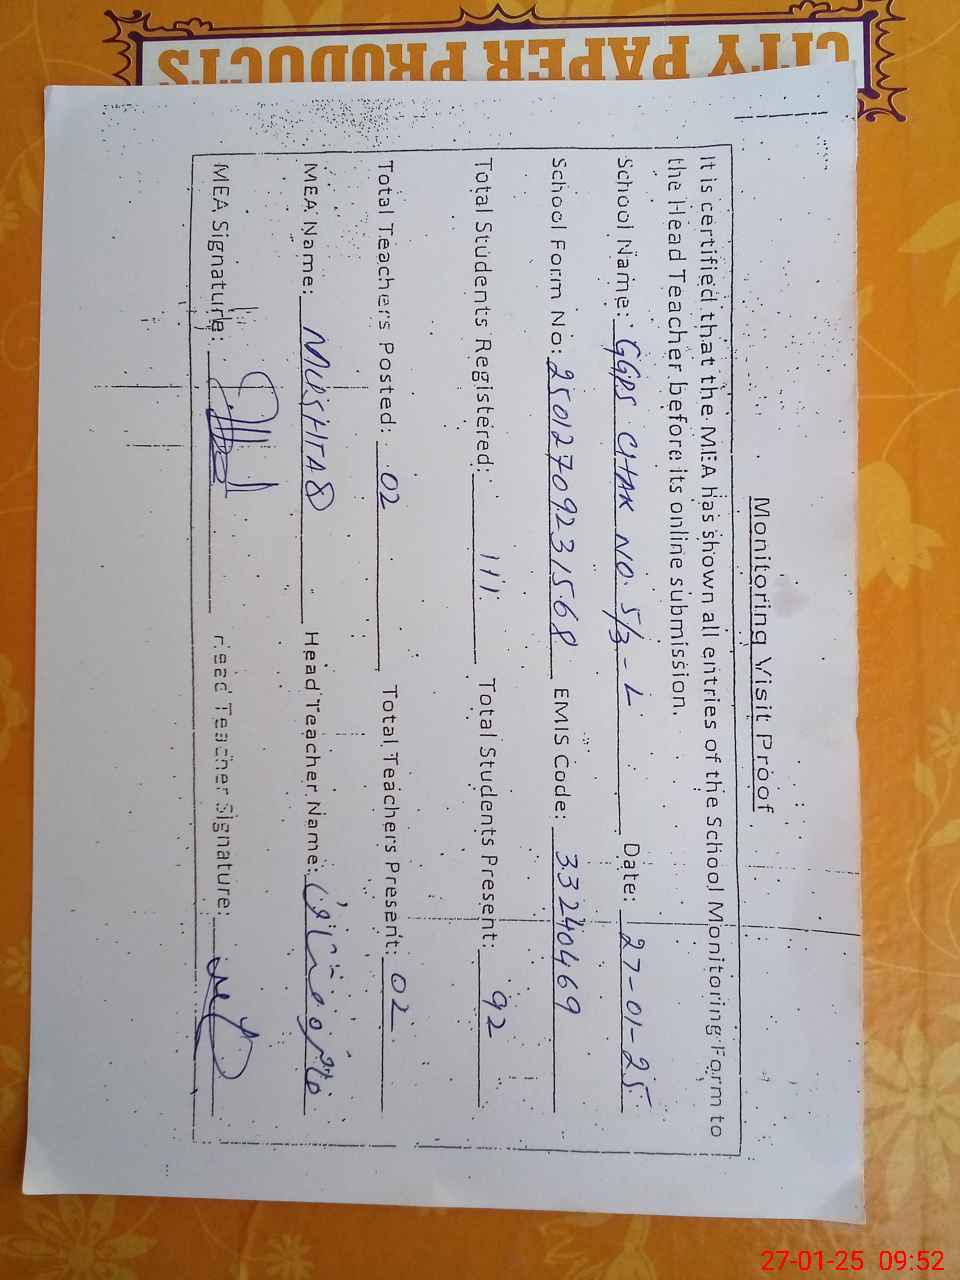 CITY PAPER PRODUCTS
Monitoring Visit Proof
It is certified that the MEA has shown all entries of the School Monitoring Form to
the Head Teacher before its online submission.
School Name: GGPS CHAK NO. 5/3-L Date: 27-01-25
School Form No: 25012709231568 EMIS Code: 33240469
Total Students Registered: 111 Total Students Present: 92
Total Teachers Posted: 02 Total Teachers Present: 02
MEA Name: MUSHTAQ Head Teacher Name:
MEA Signature: Head Teacher Signature:
27-01-25 09:52